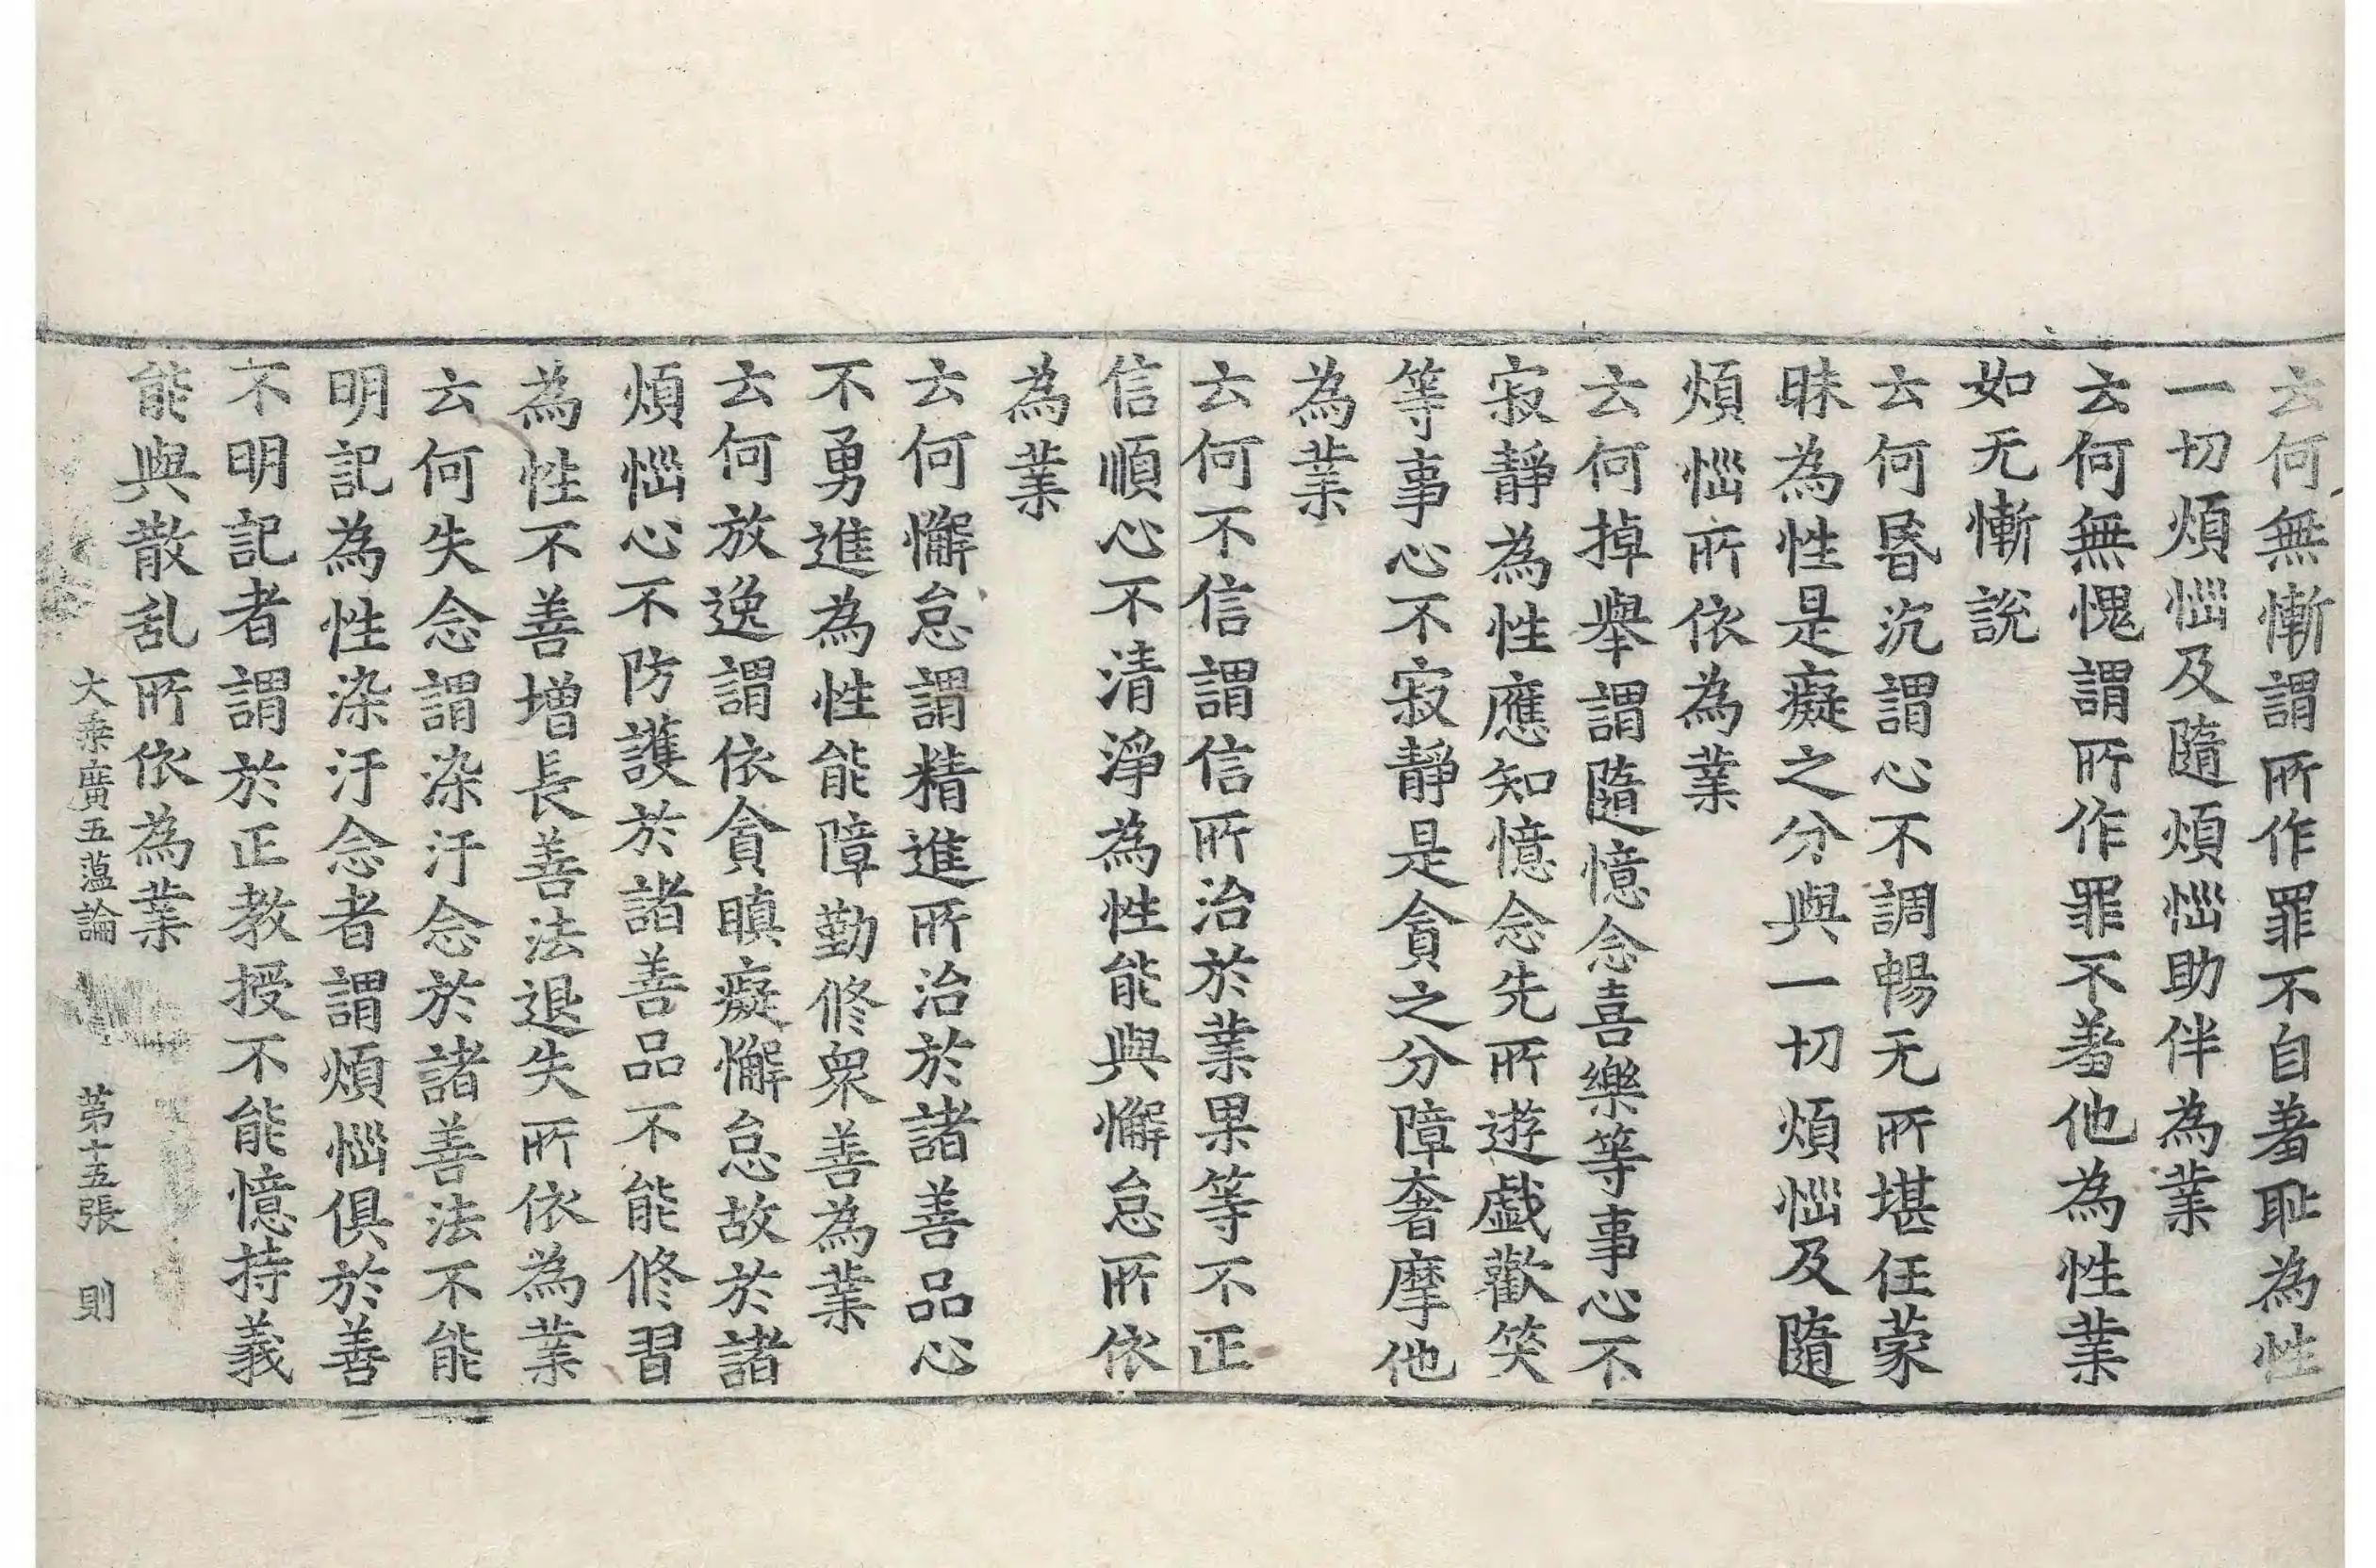 云何無慚謂所作罪不自羞恥為性
一切煩惱及隨煩惱助伴為業
云何無愧謂所作罪不羞他為性業
如无慚說
云何昬沉謂心不調暢无所堪任蒙
昧為性是癡之分與一切煩惱及隨
煩惱所依為業
云何掉舉謂隨憶念喜樂等事心不
寂靜為性應知憶念先所遊戲歡笑
等事心不寂靜是貪之分障奢摩他
為業
云何不信謂信所治於業果等不正
信順心不清淨為性能與懈怠所依
為業
云何懈怠謂精進所治於諸善品心
不勇進為性能障勤修衆善為業
云何放逸謂依貪瞋癡懈怠故於諸
煩惱心不防護於諸善品不能修習
為性不善增長善法退失所依為業
云何失念謂染汙念於諸善法不能
明記為性染汙念者謂煩惱俱於善
不明記者謂於正教授不能憶持義
能與散乱所依為業
大乘廣五蘊論 第十五張 則